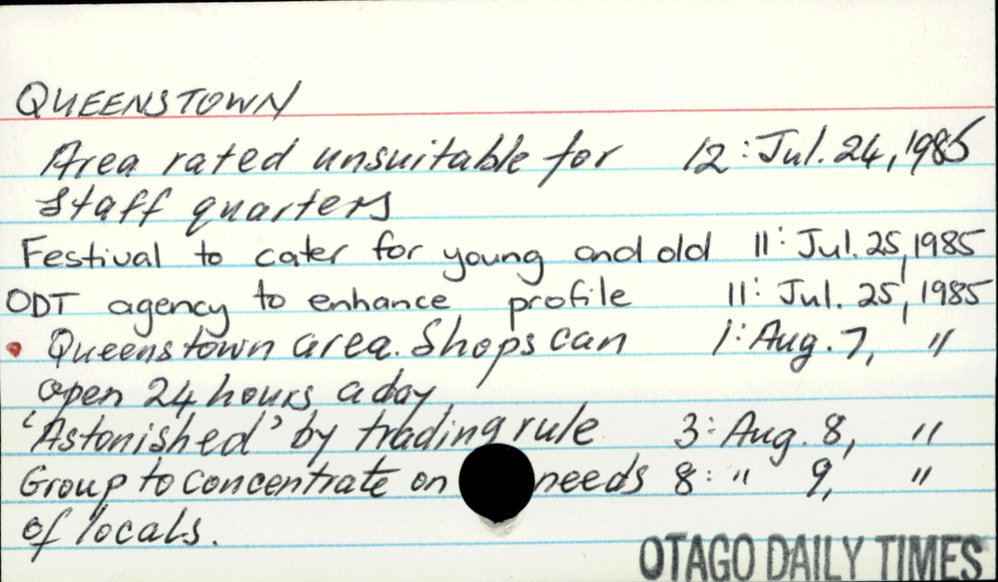 QUEENSTOWN
Area rated unsuitable for 12: Jul. 24, 1985
Staff quarters
Festival to cater for young and old 11: Jul. 25, 1985
ODT agency to enhance profile 11: Jul. 25, 1985
Queenstown area. Shops can 1: Aug. 7, "
open 24 hours a day.
'Astonished' by trading rule 3: Aug. 8, "
Group to concentrate on needs 8: " 9, "
of locals.
OTAGO DAILY TIMES